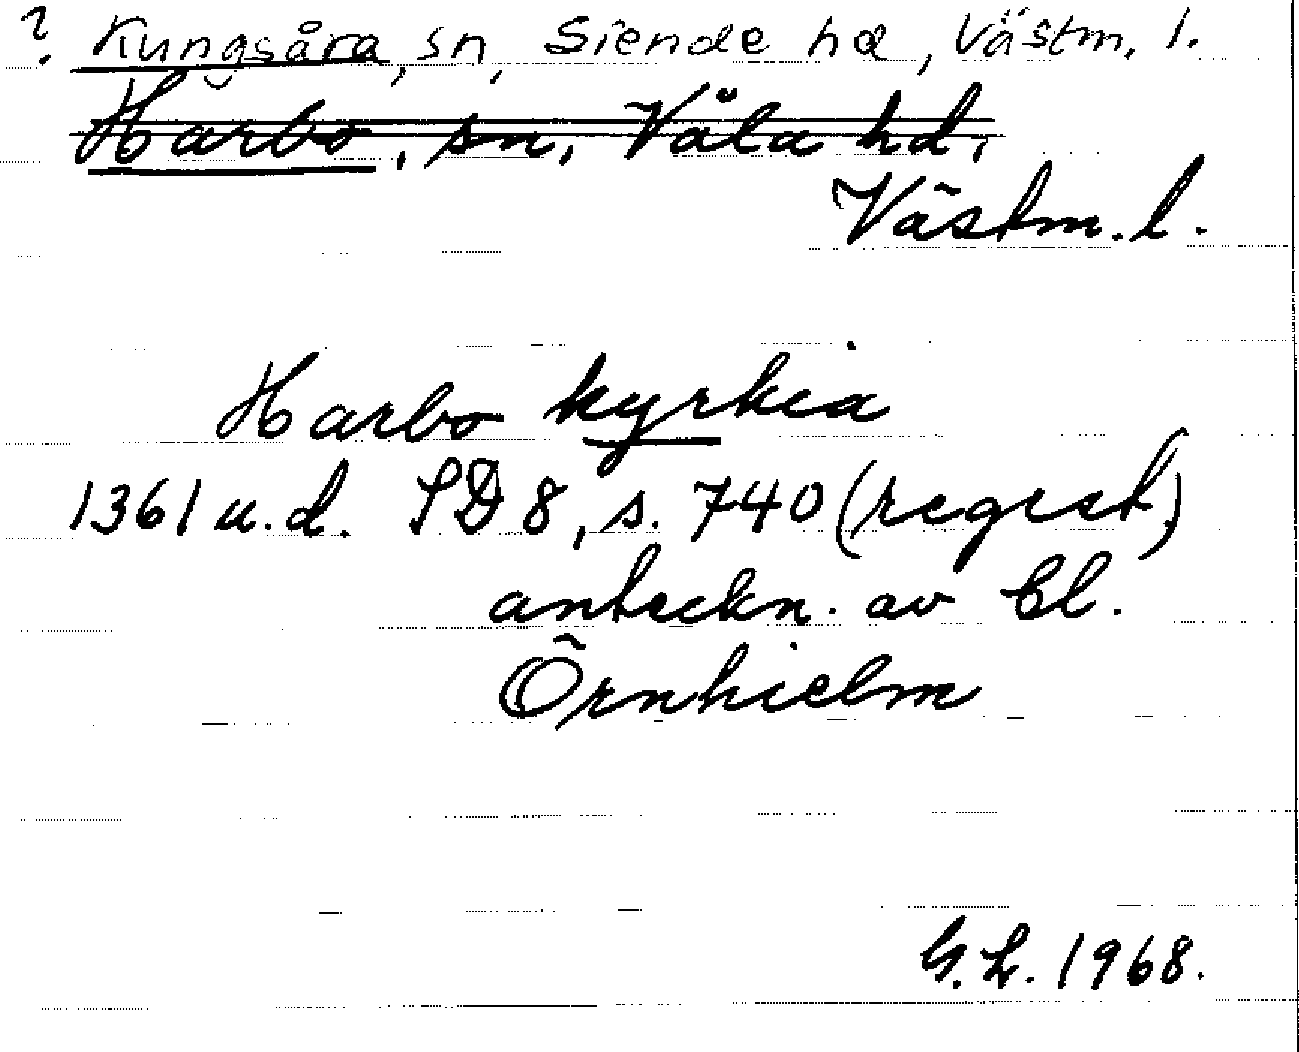 ? Kungsåra, sn, Siende hd, Västm. l.
Harbo, sn, Våla hd,
Västm. l.
Harbo kyrkia
1361 u.d. SD 8, s. 740 (regest)
anteckn. av Cl.
Örnhielm
G.L. 1968.